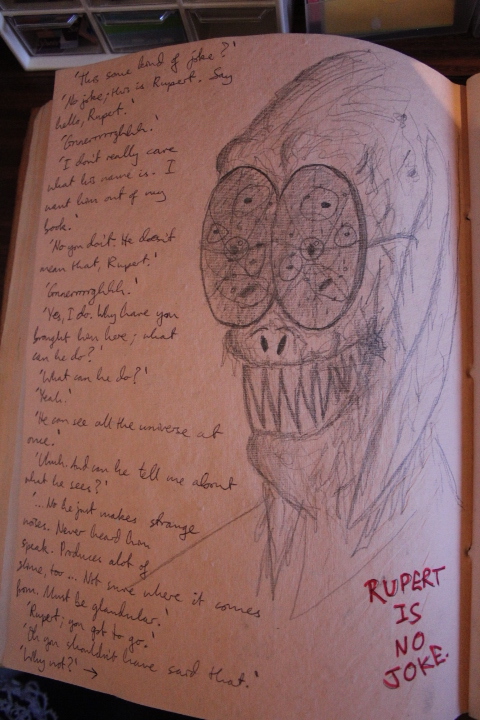 'This some kind of joke?'
'No joke; this is Rupert. Say
hello, Rupert.'
'Gnnerrrrghhh.'
'I don't really care
what his name is. I
want him out of my
book.'
'No you don't. He doesn't
mean that, Rupert.'
'Gnnerrrrghhh.'
'Yes, I do. Why have you
brought him here; what
can he do?'
'What can he do?'
'Yeah.'
'He can see all the universe at
once.'
'Uhuh. And can he tell me about
what he sees?'
'... No he just makes strange
noises. Never heard him
speak. Produces alot of
slime, too... Not sure where it comes
from. Must be glandular.'
'Rupert; you got to go.'
'Oh you shouldn't have said that.'
'Why not?' →
RUPERT
IS
NO
JOKE.